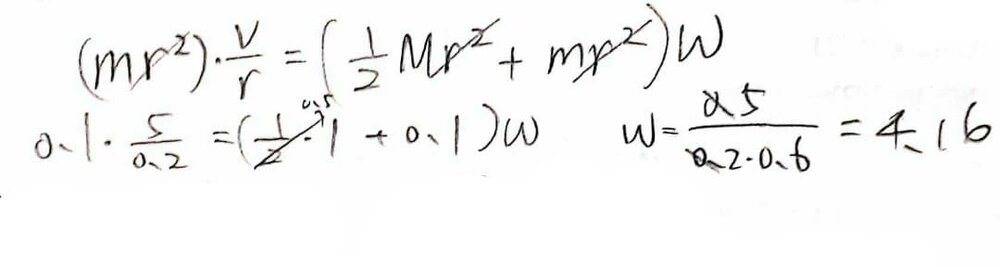 (mr²)·v/r = (1/2 Mr² + mr²)W
0.1 · 5/0.2 = (1/2 · 1 + 0.1)W W = 0.5/0.2·0.6 = 4.16
0.5